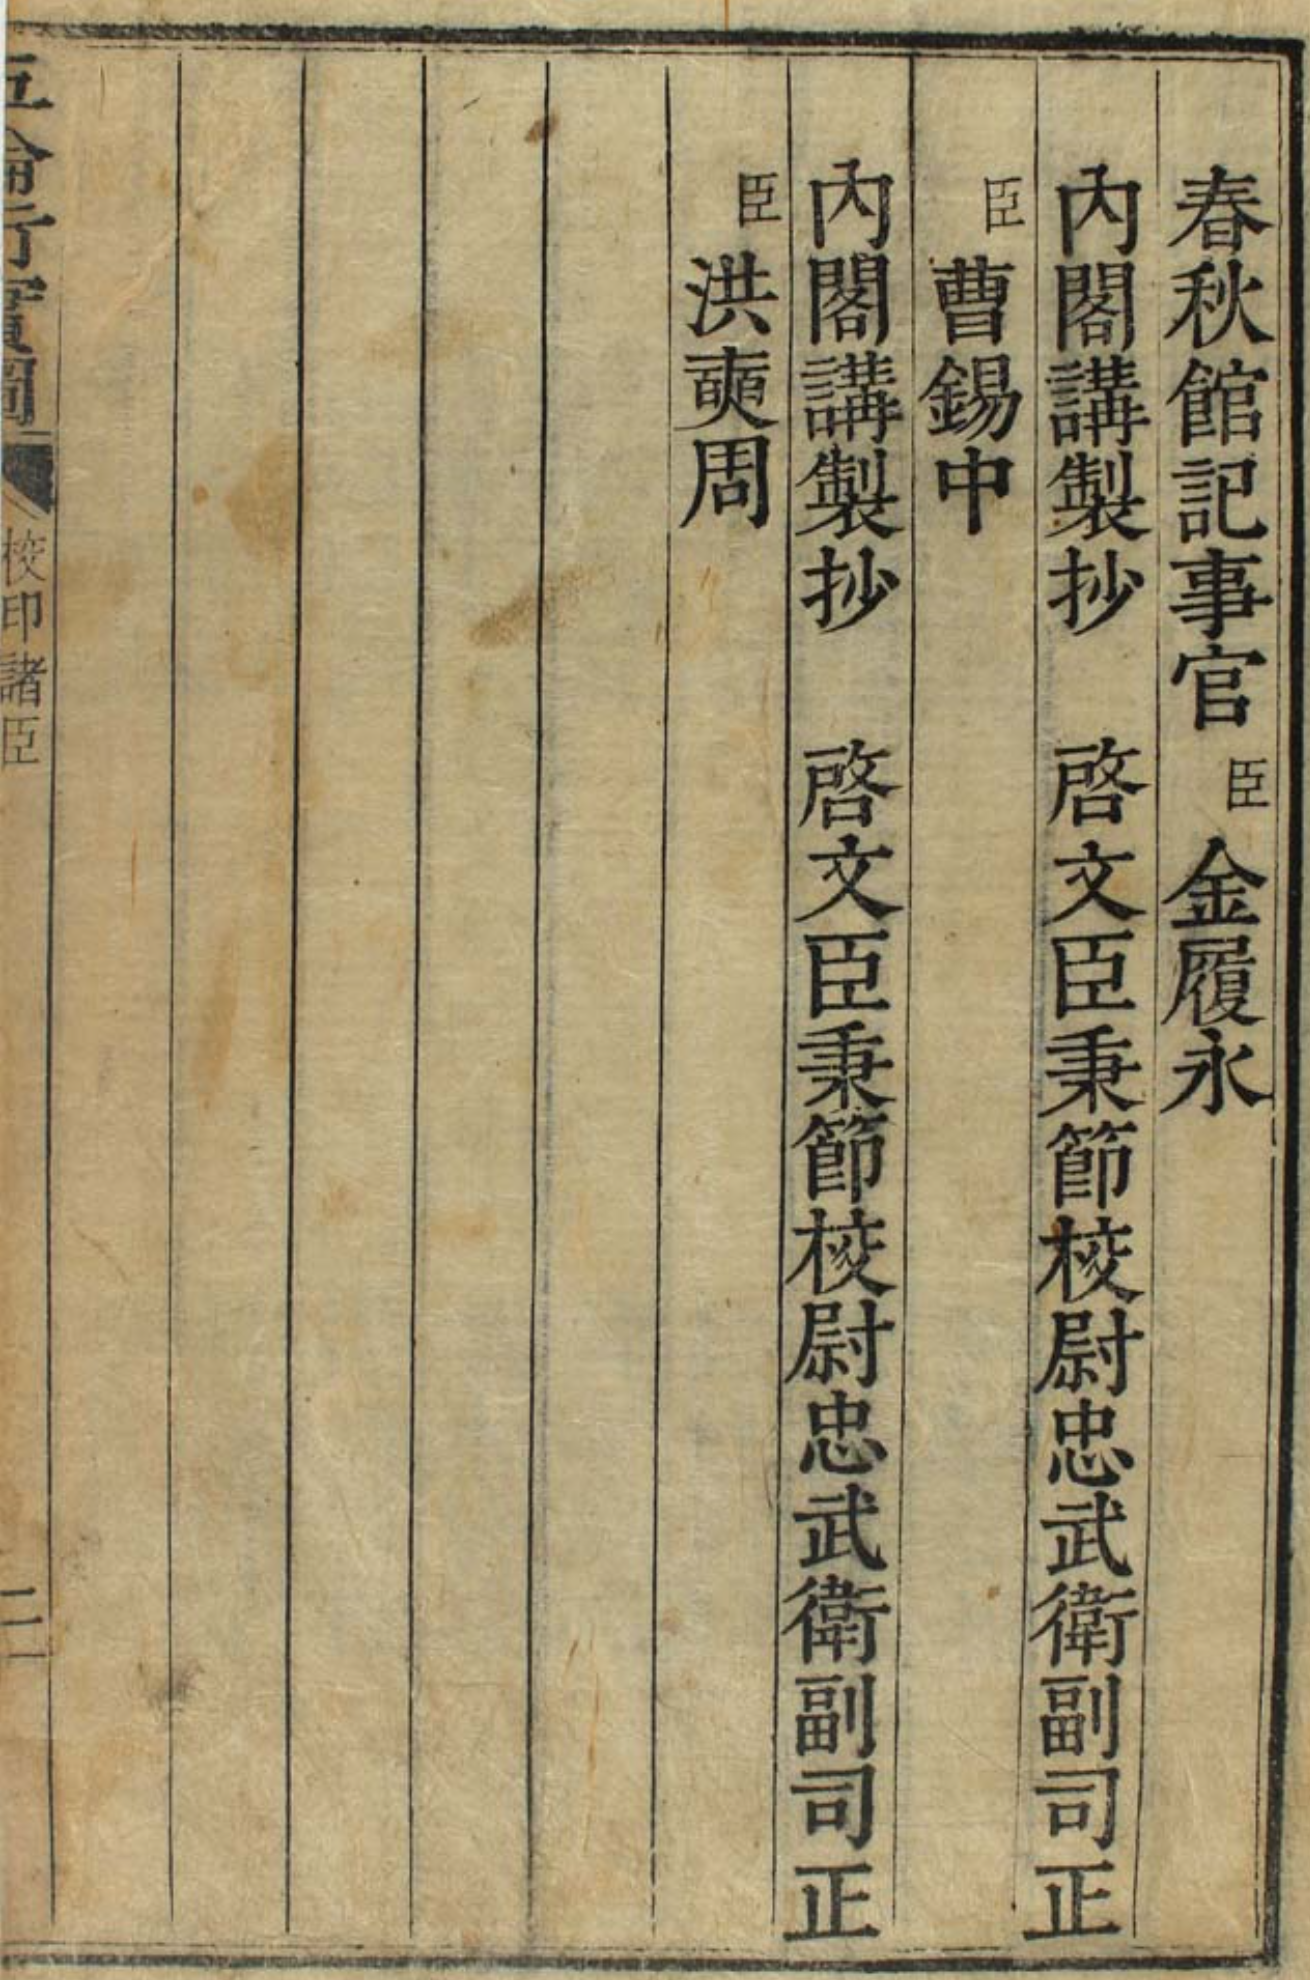 春秋館記事官臣金履永
內閣講製抄 啓文臣秉節校尉忠武衛副司正
臣曹錫中
內閣講製抄 啓文臣秉節校尉忠武衛副司正
臣洪奭周
五倫行實圖 校印諸臣 二